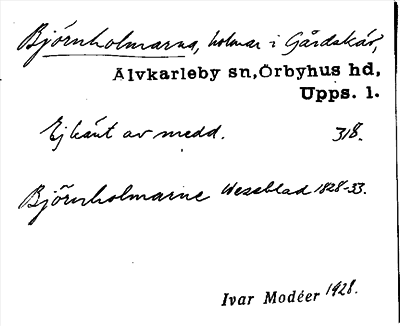 Björnholmarna, holmar i Gårdskär,
Älvkarleby sn, Örbyhus hd,
Upps. l.
Ej känt av medd. 318.
Björnholmarne Wessblad 1828-33.
Ivar Modéer 1928.